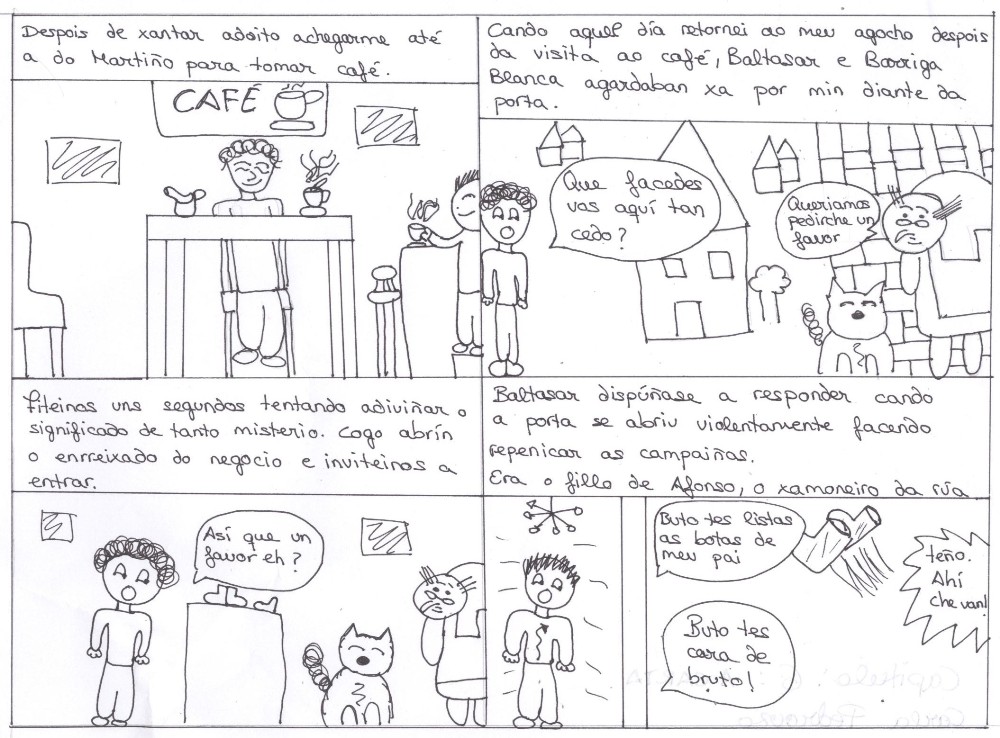 Despois de xantar adoito achegarme até
a do Martiño para tomar café.
CAFÉ
Cando aquel día retornei ao meu agocho despois
da visita ao café, Baltasar e Barriga
Blanca agardaban xa por min diante da
porta.
Que facedes
vos aquí tan
cedo?
Queriamos
pedirche un
favor
Fiteinos uns segundos tentando adiviñar o
significado de tanto misterio. Logo abrín
o enrreixado do negocio e inviteinos a
entrar.
Así que un
favor eh?
Baltasar dispúñase a responder cando
a porta se abriu violentamente facendo
repenicar as campaiñas.
Era o fillo de Afonso, o xamoneiro da rúa
Buto tes listas
as botas de
meu pai
teño.
Ahí
che van!
Buto tes
cara de
bruto!
Capítulo: 6:
Carla Pedrouzo